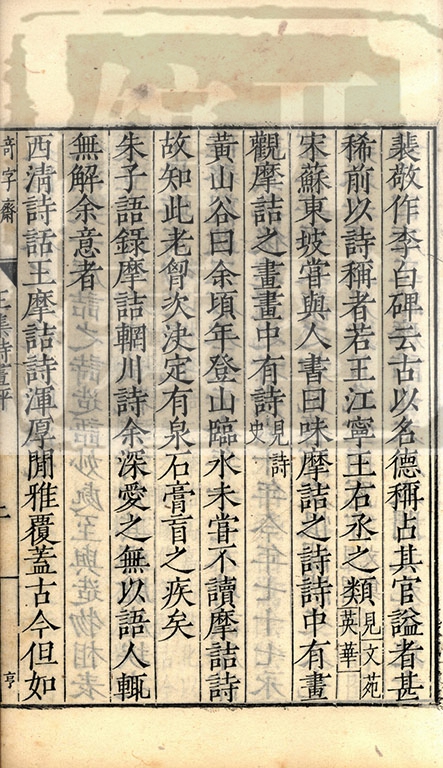 裴敬作李白碑云古以名德稱占其官謚者甚
稀前以詩稱者若王江寧王右丞之類見文苑英華
宋蘇東坡嘗與人書曰味摩詰之詩詩中有畫
觀摩詰之畫畫中有詩見詩史
黃山谷曰余頃年登山臨水未嘗不讀摩詰詩
故知此老胷次決定有泉石膏肓之疾矣
朱子語錄摩詰輞川詩余深愛之無以語人輒
無解余意者
西淸詩話王摩詰詩渾厚閒雅覆蓋古今但如
奇字齋
王集詩畫評
二
亨